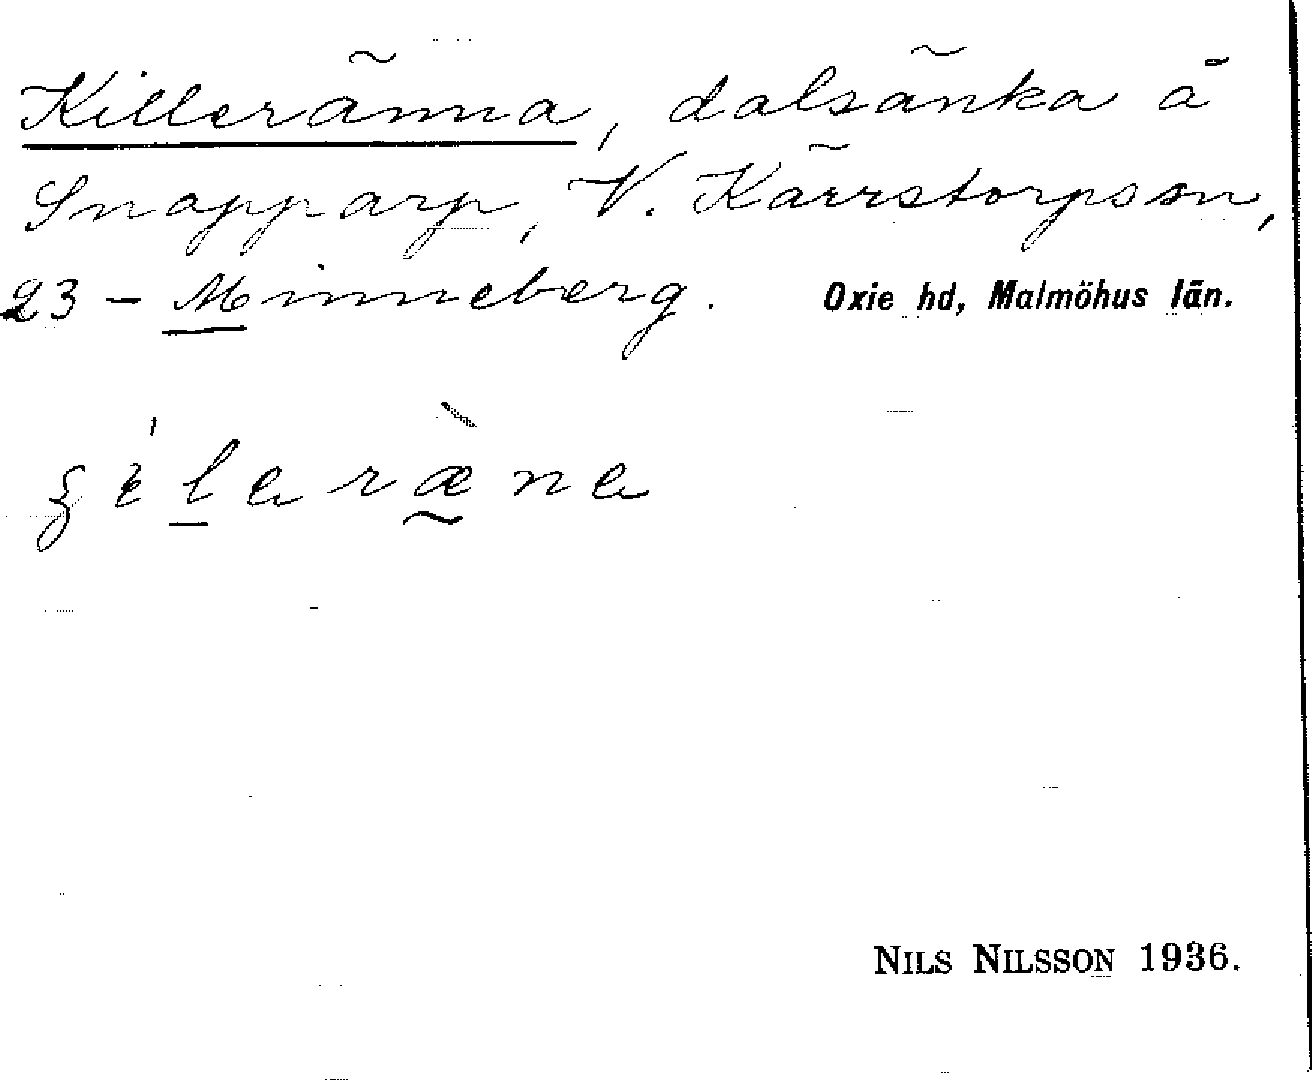 Killeränna, dalsänka å
Snapparp, V. Kärrstorpssn,
23 - Minneberg. Oxie hd, Malmöhus län.
NILS NILSSON 1936.